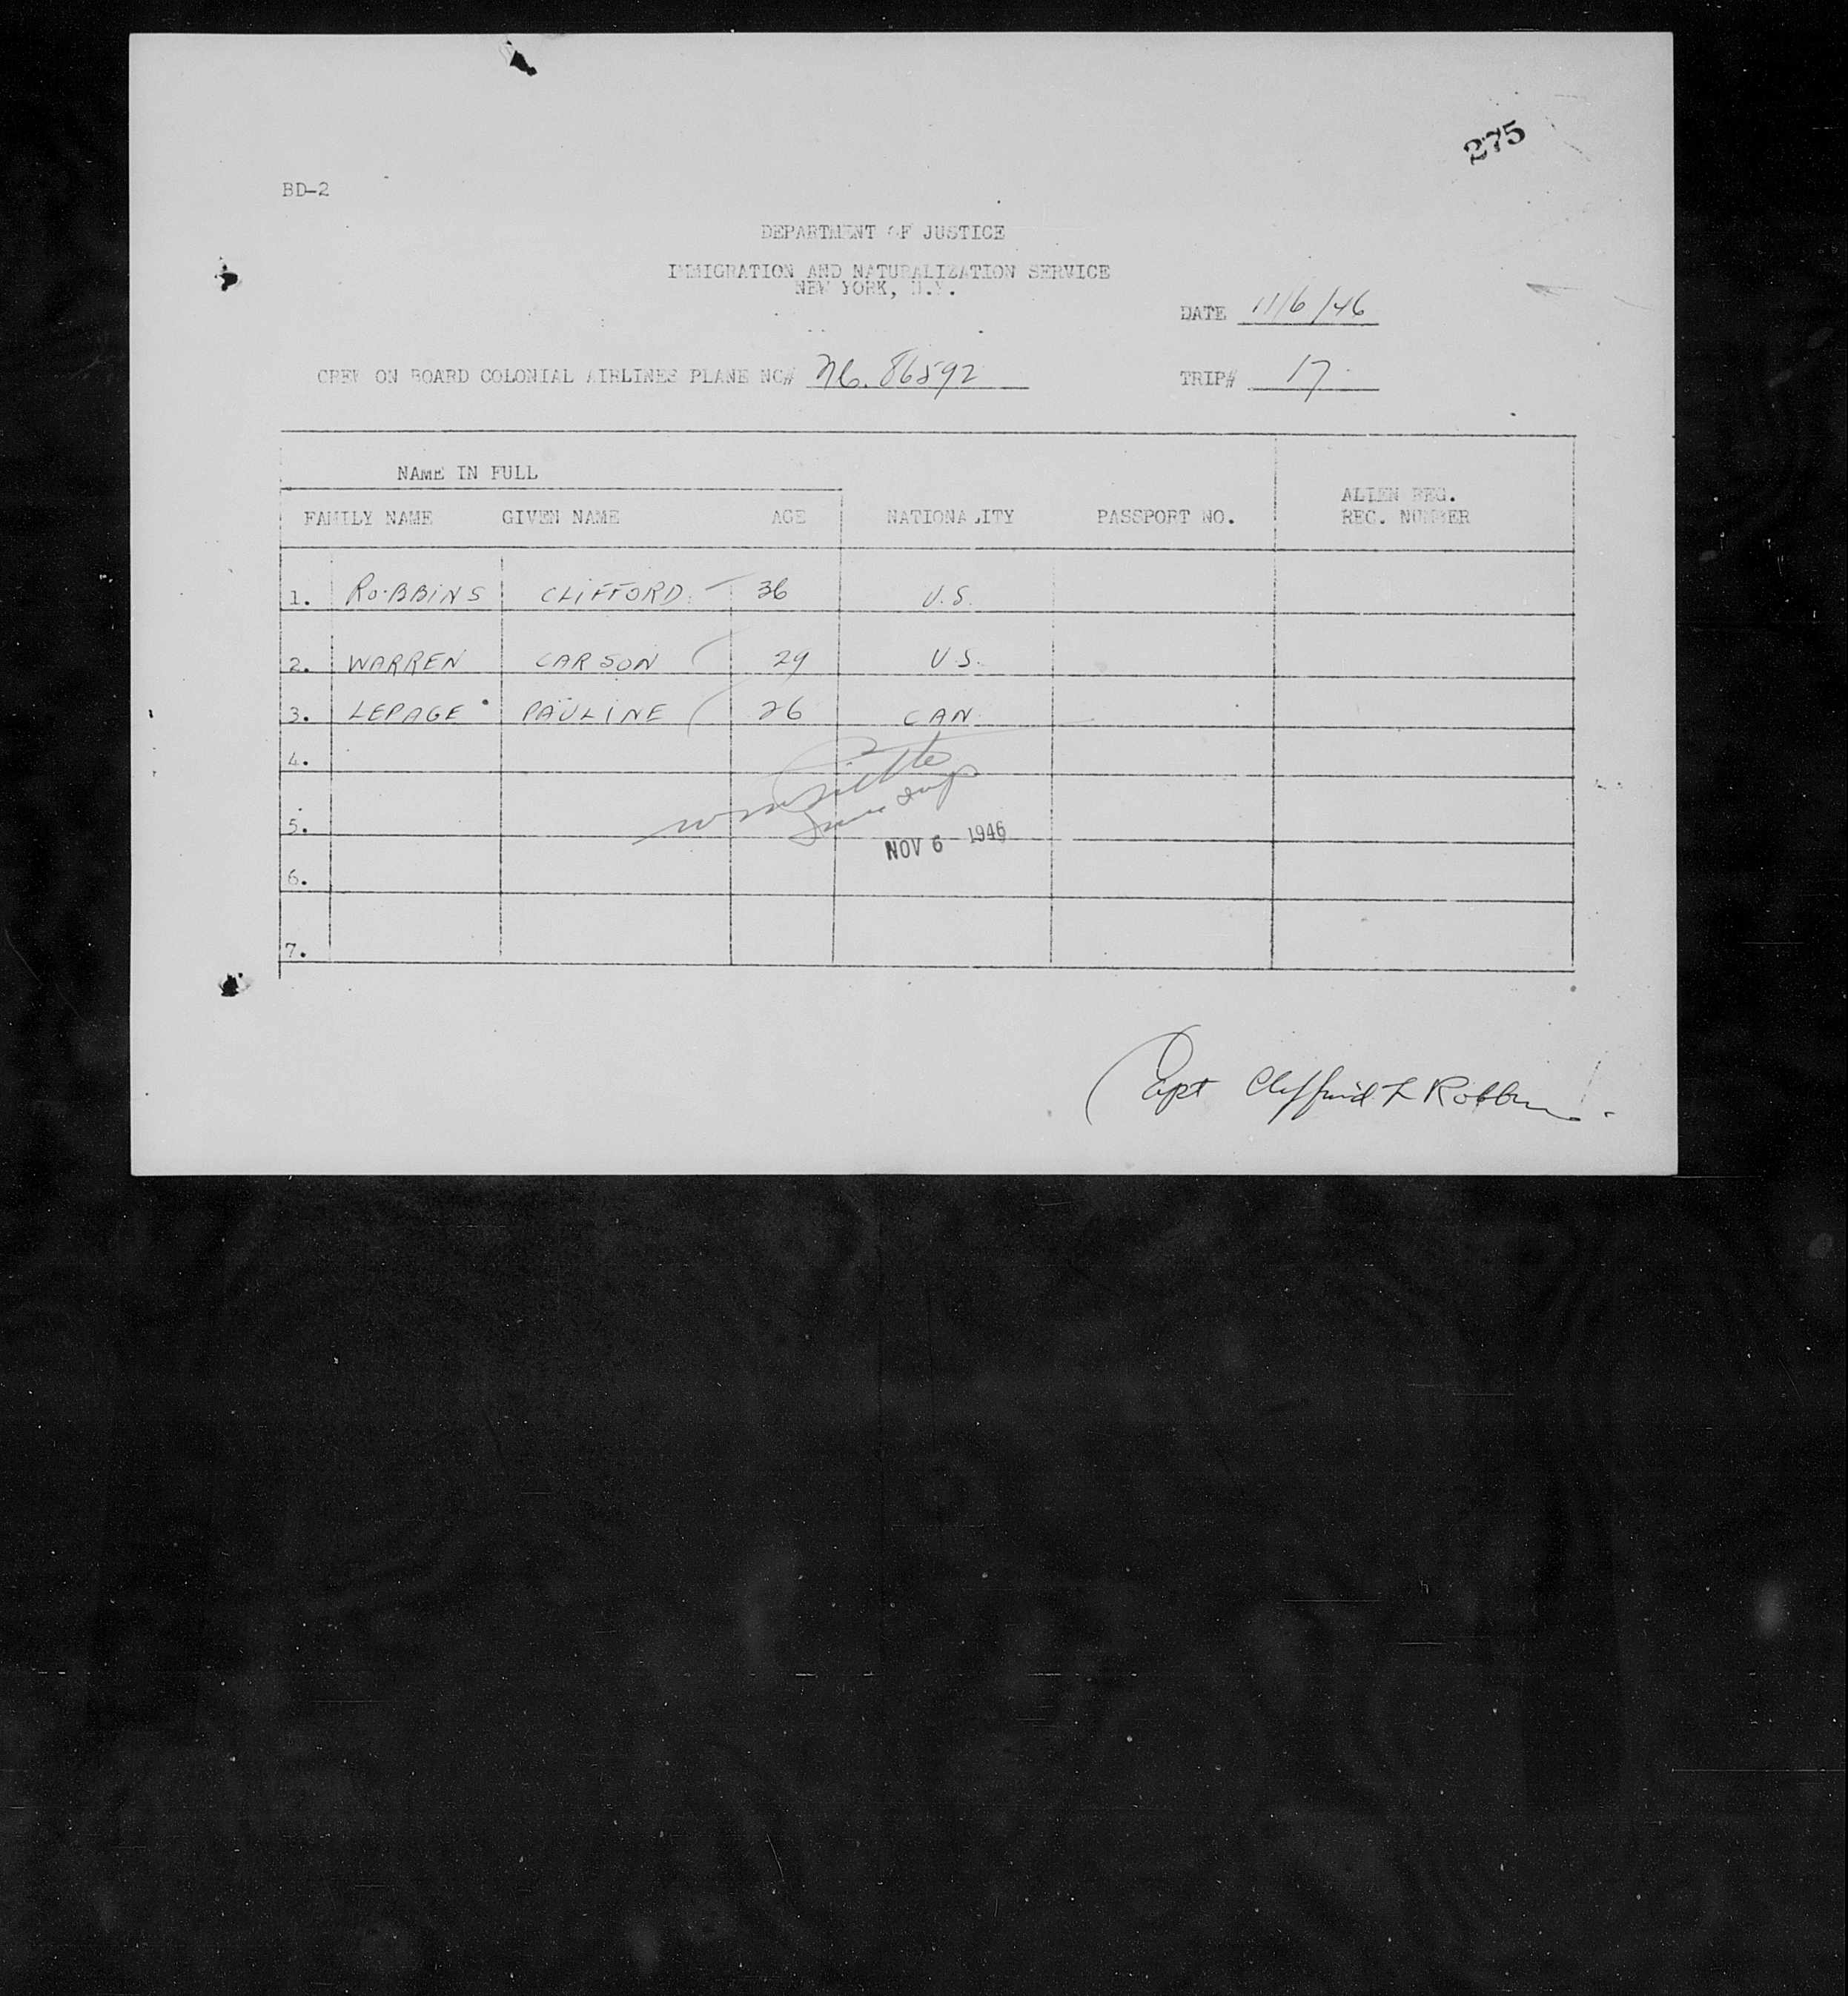 275
BD-2
DEPARTMENT OF JUSTICE
IMMIGRATION AND NATURALIZATION SERVICE
NEW YORK, N.Y.
DATE 11/6/46
CREW ON BOARD COLONIAL AIRLINES PLANE NO# Nc. 86592 TRIP# 17
NAME IN FULL
ALIEN REG.
FAMILY NAME GIVEN NAME AGE NATIONALITY PASSPORT NO. REC. NUMBER
1. ROBBINS CLIFFORD 36 U.S.
2. WARREN CARSON 29 U.S.
3. LEPAGE PAULINE 26 CAN.
4.
5.
NOV 6 1946
6.
7.
Capt Clifford L Robbins